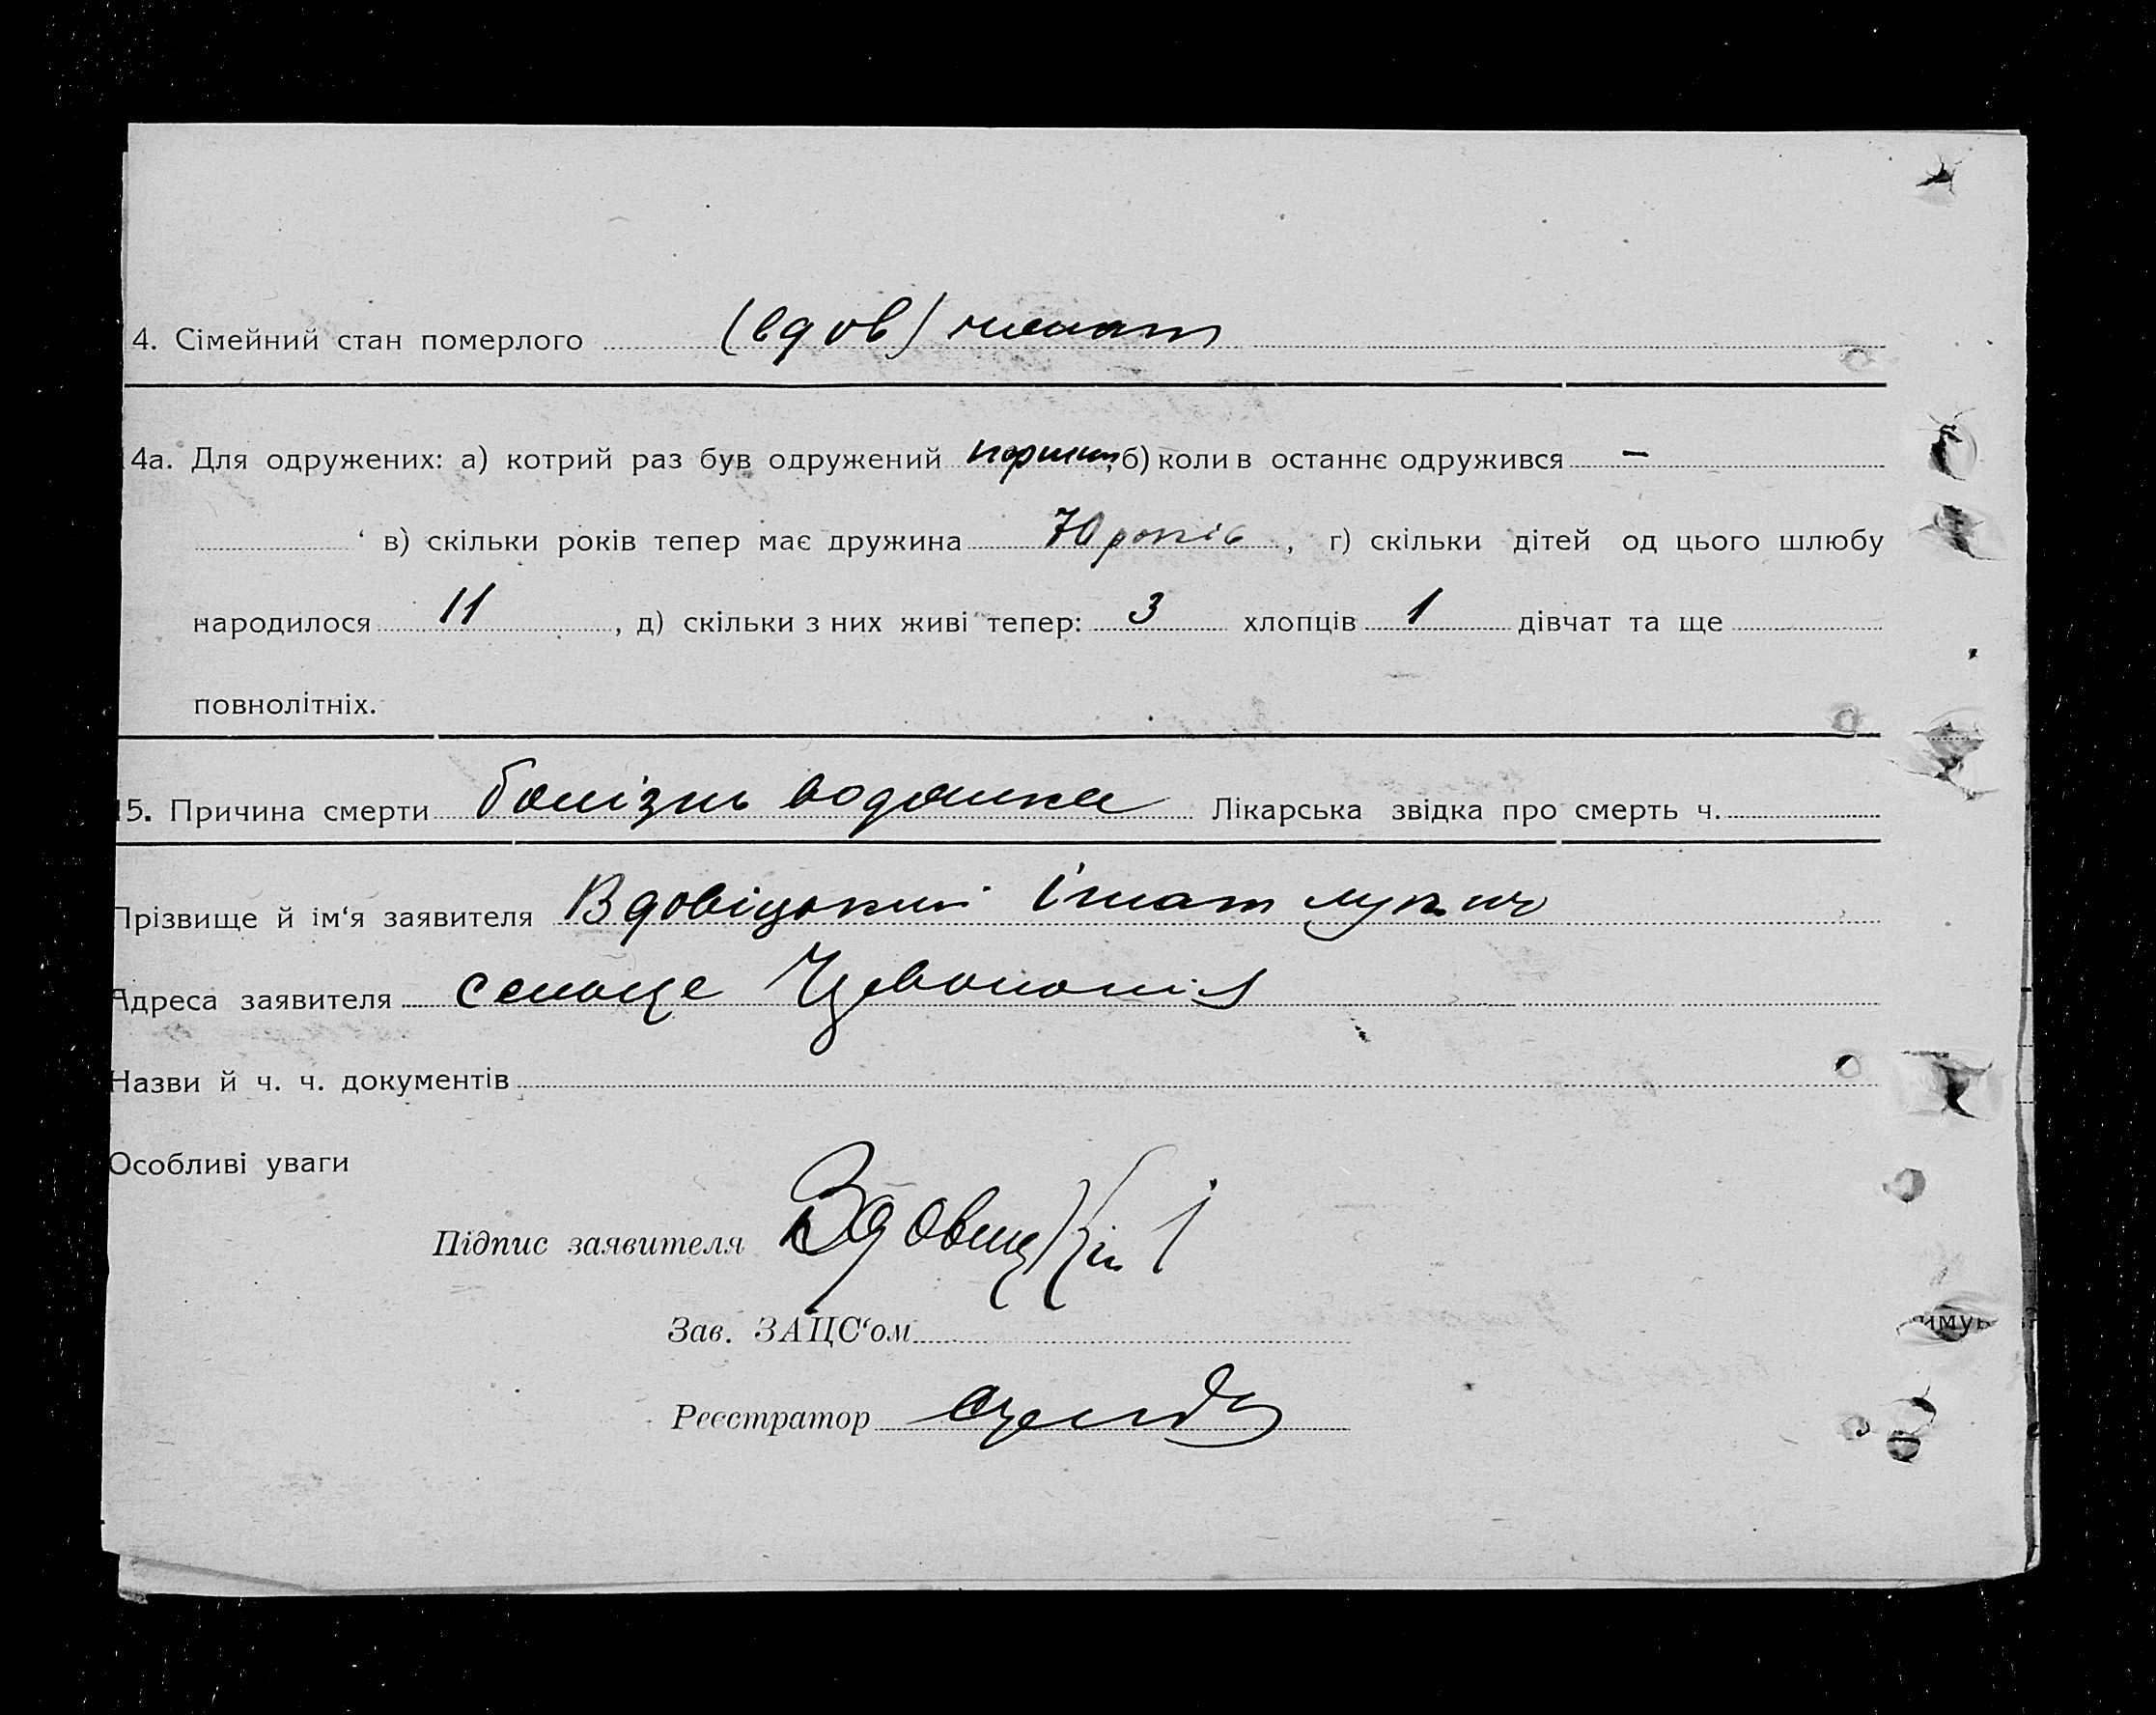 4. Сімейний стан померлого (вдов) женат
4а. Для одружених: а) котрий раз був одружений перший, б) коли в останнє одружився –
в) скільки років тепер має дружина 70 років, г) скільки дітей од цього шлюбу
народилося 11, д) скільки з них живі тепер: 3 хлопців 1 дівчат та ще
повнолітніх.
15. Причина смерти болізнь водянка Лікарська звідка про смерть ч.
Прізвище й ім‘я заявителя Вдовіцький Ігнат Лукич
Адреса заявителя селоще
Назви й ч. ч. документів
Особливі уваги
Підпис заявителя Вдовицкій І
Зав. ЗАЦС‘ом
Реєстратор